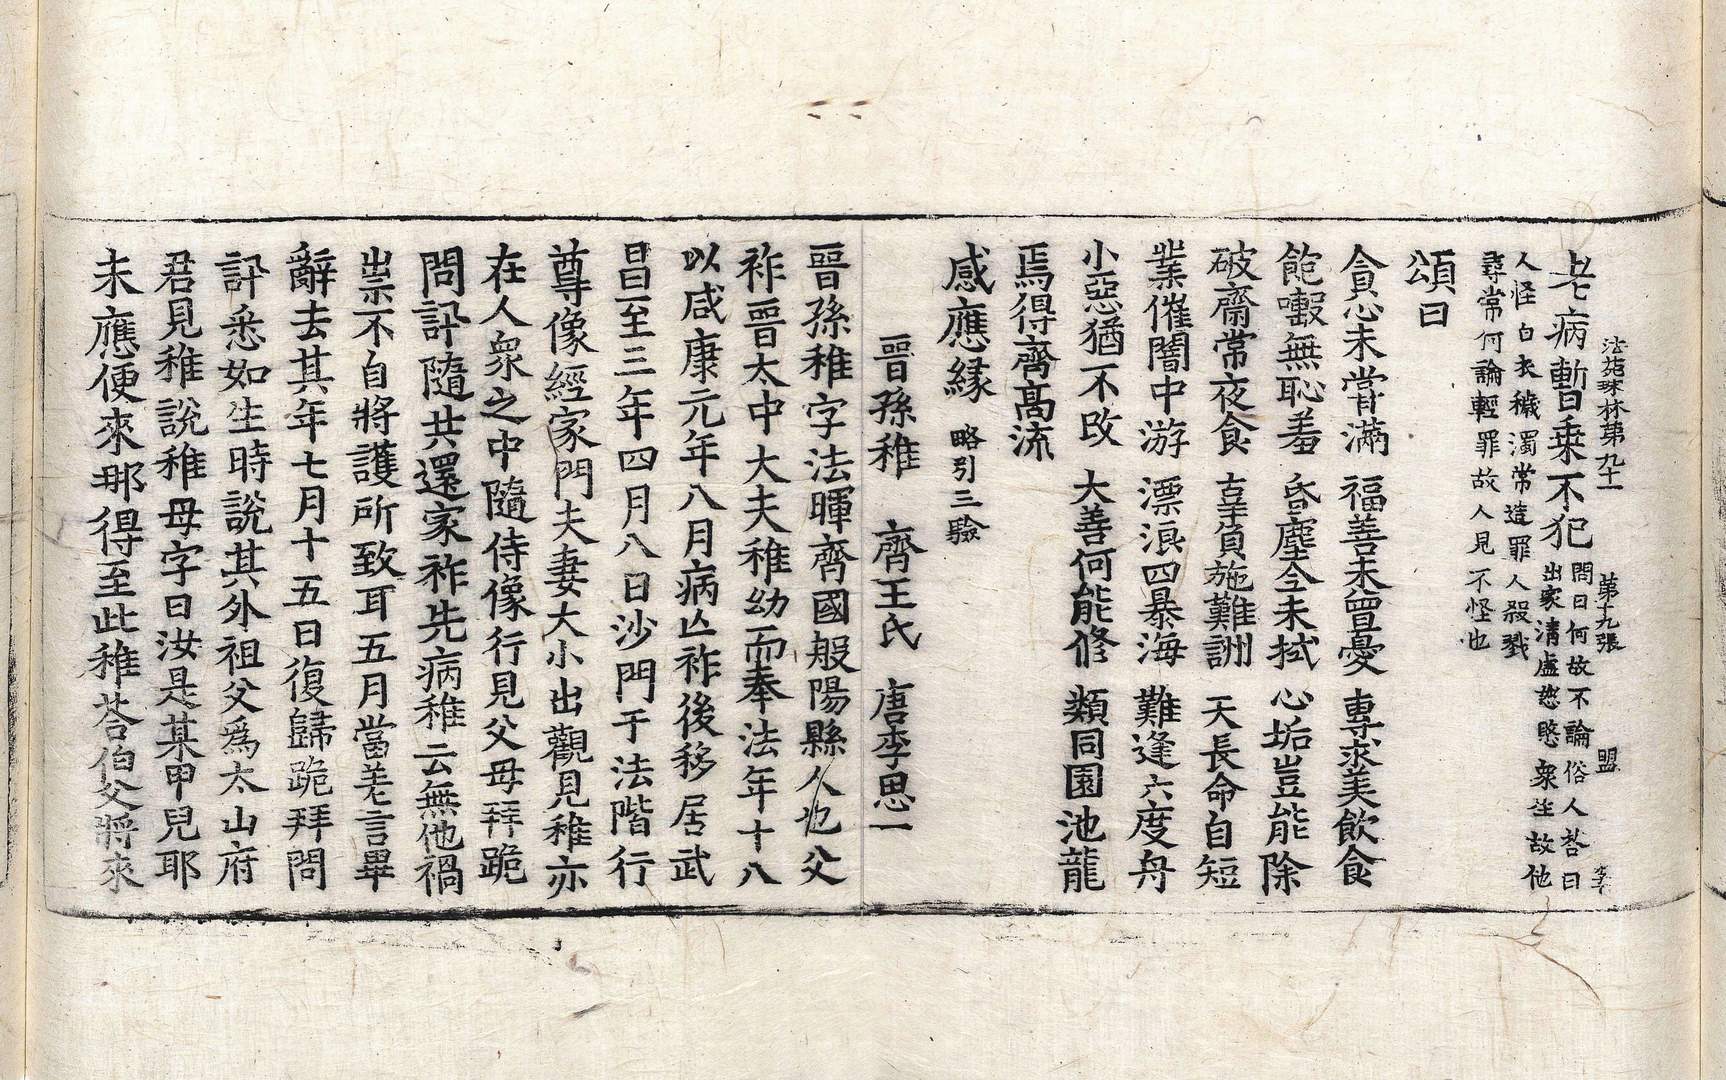 法苑珠林第九十一 第十九張 盟
老病暫乗不犯問曰何故不論俗人荅曰
出家清虛慈愍衆生故他
人怪白衣穢濁常造罪人殺戮
尋常何論輕罪故人見不怪也
頌曰
貪心未甞滿 福善未曾憂 專求美飲食
飽噉無恥羞 昏塵全未拭 心垢豈能除
破齋常夜食 辜負施難詶 天長命自短
業催闇中游 漂浪四暴海 難逢六度舟
小惡猶不改 大善何能修 類同園池龍
焉得齊高流
感應緣 略引三驗
晉孫稚 齊王氏 唐李思一
晉孫稚字法暉齊國般陽縣人也父
祚晉太中大夫稚幼而奉法年十八
以咸康元年八月病亡祚後移居武
昌至三年四月八日沙門于法階行
尊像經家門夫妻大小出觀見稚亦
在人衆之中隨侍像行見父母拜跪
問訊隨共還家祚先病稚云無他禍
祟不自將護所致耳五月當差言畢
辭去其年七月十五日復歸跪拜問
訊悉如生時說其外祖父爲太山府
君見稚說稚母字曰汝是某甲兒耶
未應便來那得至此稚荅伯父將來